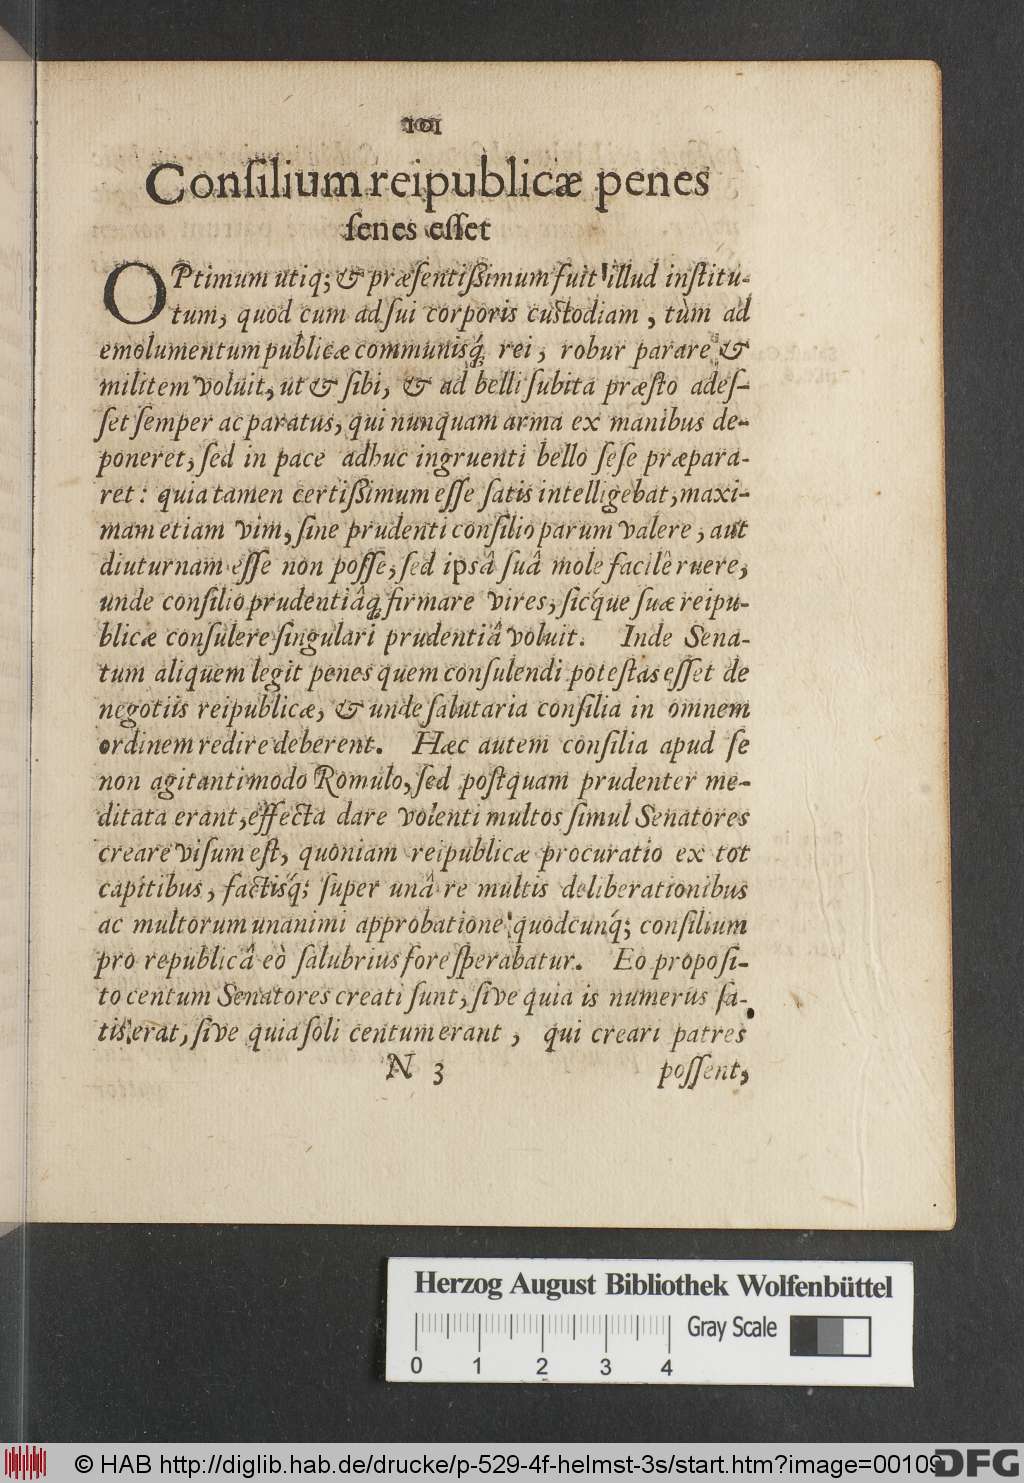 101
Conſilium reipublicæ penes
ſenes eſſet
OPtimum utiq; & præſentiſſimum fuit illud inſtitu-
tum, quod cum ad ſui corporis cuſtodiam, tùm ad
emolumentum publicæ communisq́; rei, robur parare &
militem voluit, ut & ſibi, & ad belli ſubita præſto adeſ-
ſet ſemper ac paratus, qui nunquam arma ex manibus de-
poneret, ſed in pace adhuc ingruenti bello ſeſe præpara-
ret: quia tamen certiſſimum eſſe ſatis intelligebat, maxi-
mam etiam vim, ſine prudenti conſilio parum valere, aut
diuturnam eſſe non poſſe, ſed ipsâ ſuâ mole facilè ruere,
unde conſilio prudentiâq; firmare vires, ſicq́ue ſuæ reipu-
blicæ conſulere ſingulari prudentiâ voluit. Inde Sena-
tum aliquem legit penes quem conſulendi poteſtas eſſet de
negotiis reipublicæ, & unde ſalutaria conſilia in omnem
ordinem redire deberent. Hæc autem conſilia apud ſe
non agitanti modo Romulo, ſed poſtquam prudenter me-
ditata erant, effecta dare volenti multos ſimul Senatores
creare viſum eſt, quoniam reipublicæ procuratio ex tot
capitibus, factisq́; ſuper unâ re multis deliberationibus
ac multorum unanimi approbatione quodcunq́; conſilium
pro republicâ eò ſalubrius fore ſperabatur. Eo propoſi-
to centum Senatores creati ſunt, ſive quia is numerus ſa-
tis erat, ſive quia ſoli centum erant, qui creari patres
N 3 poſſent,
Herzog August Bibliothek Wolfenbüttel
Gray Scale
0 1 2 3 4
© HAB http://diglib.hab.de/drucke/p-529-4f-helmst-3s/start.htm?image=00109
DFG